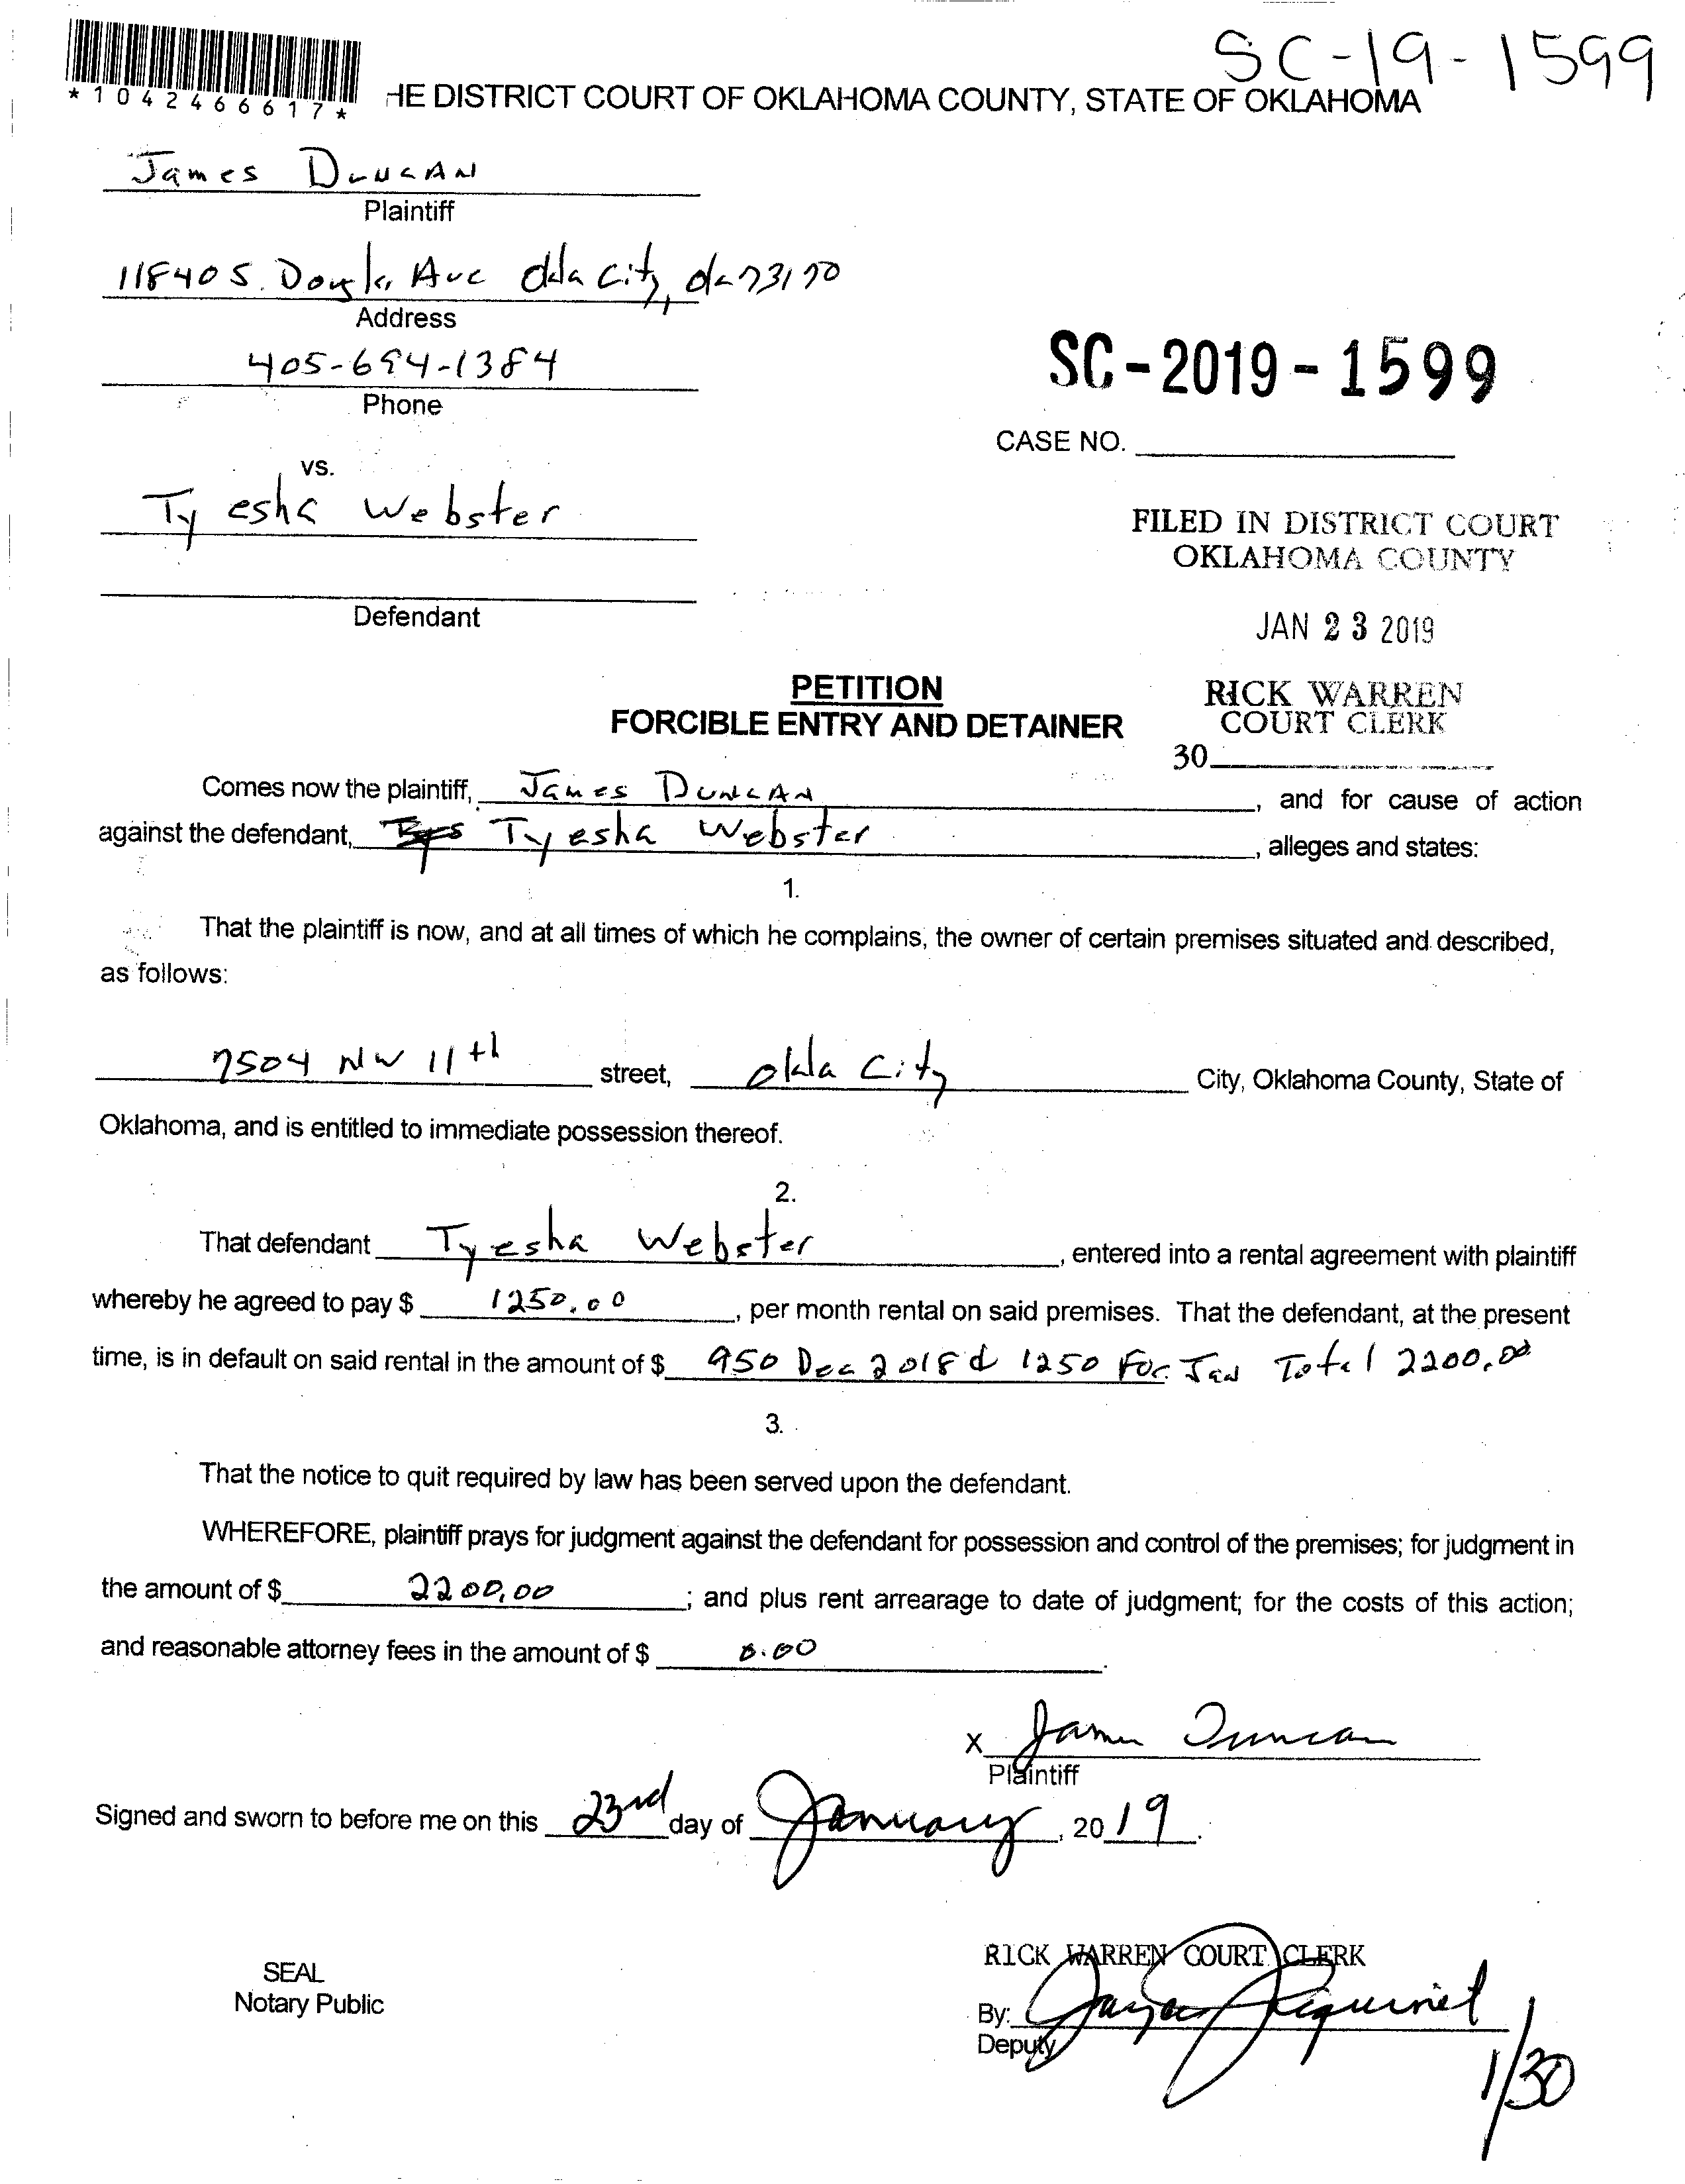 SC-19-1599
*1042466617*
HE DISTRICT COURT OF OKLAHOMA COUNTY, STATE OF OKLAHOMA
James Duncan
Plaintiff
11840 S. Ave Okla City, Ok 73170
Address
405-694-1384
Phone
SC-2019-1599
CASE NO.
vs.
Tyesha Webster
FILED IN DISTRICT COURT
OKLAHOMA COUNTY
Defendant
JAN 23 2019
PETITION
FORCIBLE ENTRY AND DETAINER
RICK WARREN
COURT CLERK
30
Comes now the plaintiff, James Duncan, and for cause of action
against the defendant, Tyesha Webster, alleges and states:
1.
That the plaintiff is now, and at all times of which he complains, the owner of certain premises situated and described,
as follows:
7504 NW 11th street, Okla City City, Oklahoma County, State of
Oklahoma, and is entitled to immediate possession thereof.
2.
That defendant Tyesha Webster, entered into a rental agreement with plaintiff
whereby he agreed to pay $ 1250.00, per month rental on said premises. That the defendant, at the present
time, is in default on said rental in the amount of $ 950 Dec 2018 & 1250 For Jan Total 2200.00
3.
That the notice to quit required by law has been served upon the defendant.
WHEREFORE, plaintiff prays for judgment against the defendant for possession and control of the premises; for judgment in
the amount of $ 2200.00; and plus rent arrearage to date of judgment; for the costs of this action;
and reasonable attorney fees in the amount of $ 0.00.
X James Duncan
Plaintiff
Signed and sworn to before me on this 23rd day of January, 2019.
SEAL
Notary Public
RICK WARREN COURT CLERK
By:
Deputy
1/30